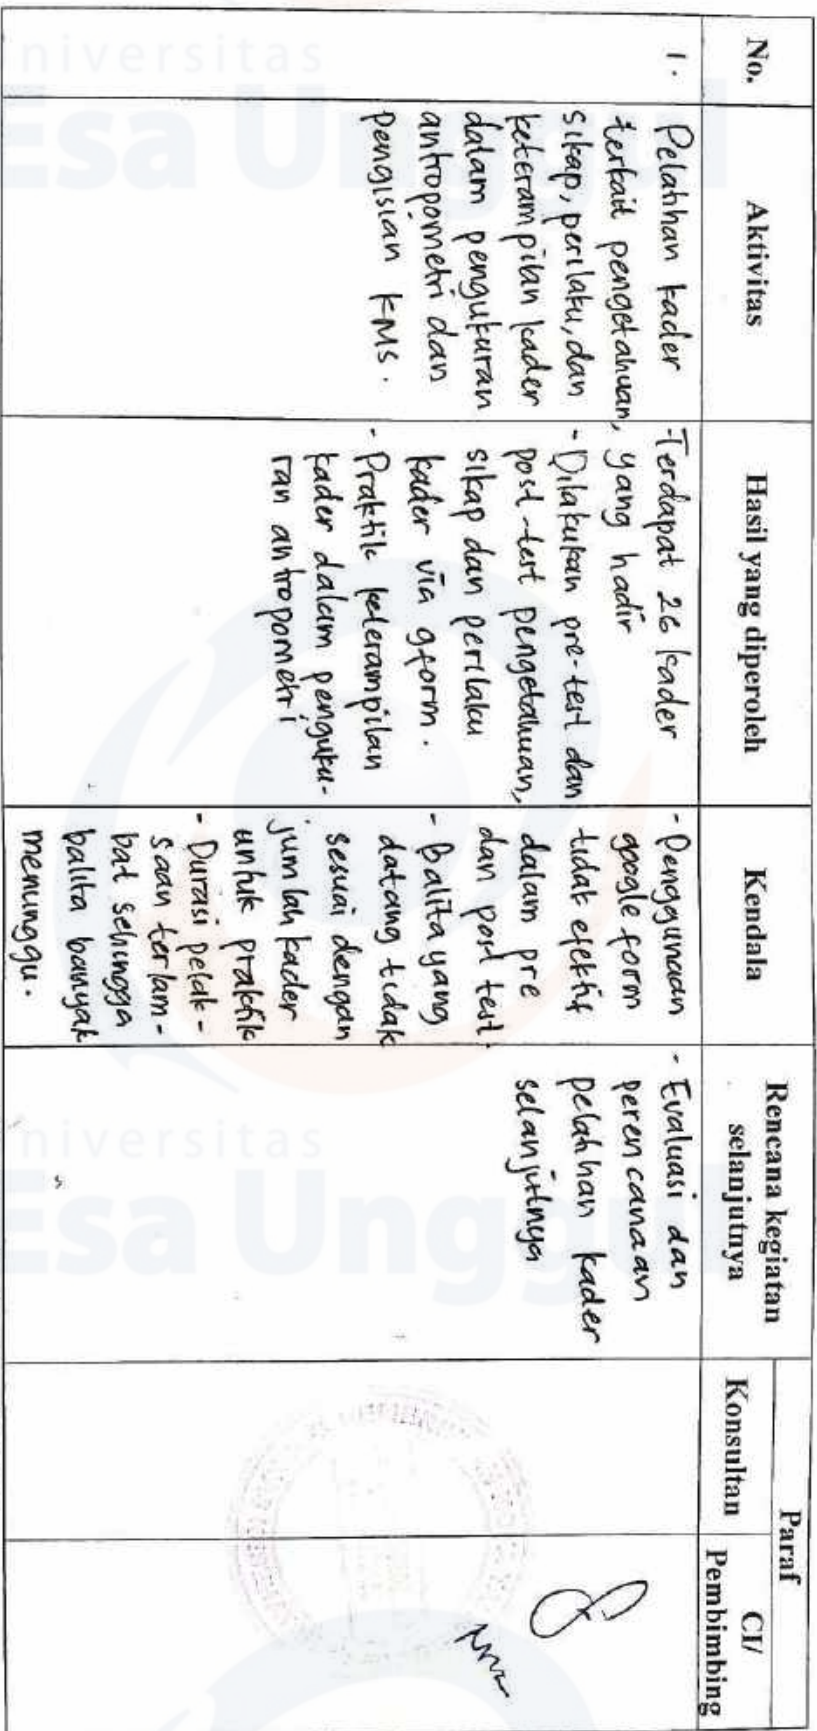 No.
Aktivitas
Hasil yang diperoleh
Kendala
Rencana kegiatan
selanjutnya
Paraf
Konsultan
CI/
Pembimbing
1.
Pelatihan kader
terkait pengetahuan,
sikap, perilaku, dan
keterampilan kader
dalam pengukuran
antropometri dan
pengisian KMS.
- Terdapat 26 kader
yang hadir
- Dilakukan pre-test dan
post-test pengetahuan,
sikap dan perilaku
kader via gform.
- Praktik keterampilan
kader dalam penguku-
ran antropometri
- Penggunaan
google form
tidak efektif
dalam pre
dan post test.
- Balita yang
datang tidak
sesuai dengan
jumlah kader
untuk praktik
- Durasi pelak-
saan terlam-
bat sehingga
balita banyak
menunggu.
- Evaluasi dan
perencanaan
pelatihan kader
selanjutnya
Universitas
Esa Unggul
Universitas
Esa Unggul